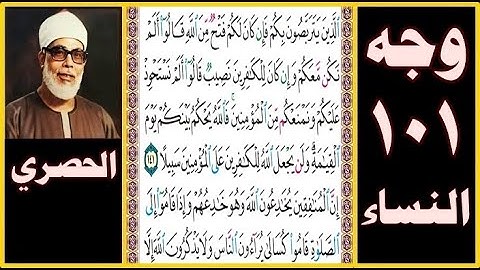 ٱلَّذِينَ يَتَرَبَّصُونَ بِكُمْ فَإِن كَانَ لَكُمْ فَتْحٌ مِّنَ ٱللَّهِ قَالُوٓا۟ أَلَمْ
نَكُن مَّعَكُمْ وَإِن كَانَ لِلْكَٰفِرِينَ نَصِيبٌ قَالُوٓا۟ أَلَمْ نَسْتَحْوِذْ
عَلَيْكُمْ وَنَمْنَعْكُم مِّنَ ٱلْمُؤْمِنِينَ فَٱللَّهُ يَحْكُمُ بَيْنَكُمْ يَوْمَ
ٱلْقِيَٰمَةِ وَلَن يَجْعَلَ ٱللَّهُ لِلْكَٰفِرِينَ عَلَى ٱلْمُؤْمِنِينَ سَبِيلًا ١٤١
إِنَّ ٱلْمُنَٰفِقِينَ يُخَٰدِعُونَ ٱللَّهَ وَهُوَ خَٰدِعُهُمْ وَإِذَا قَامُوٓا۟ إِلَى
ٱلصَّلَوٰةِ قَامُوا۟ كُسَالَىٰ يُرَآءُونَ ٱلنَّاسَ وَلَا يَذْكُرُونَ ٱللَّهَ إِلَّا
وجه
١٠١
النساء
الحصري